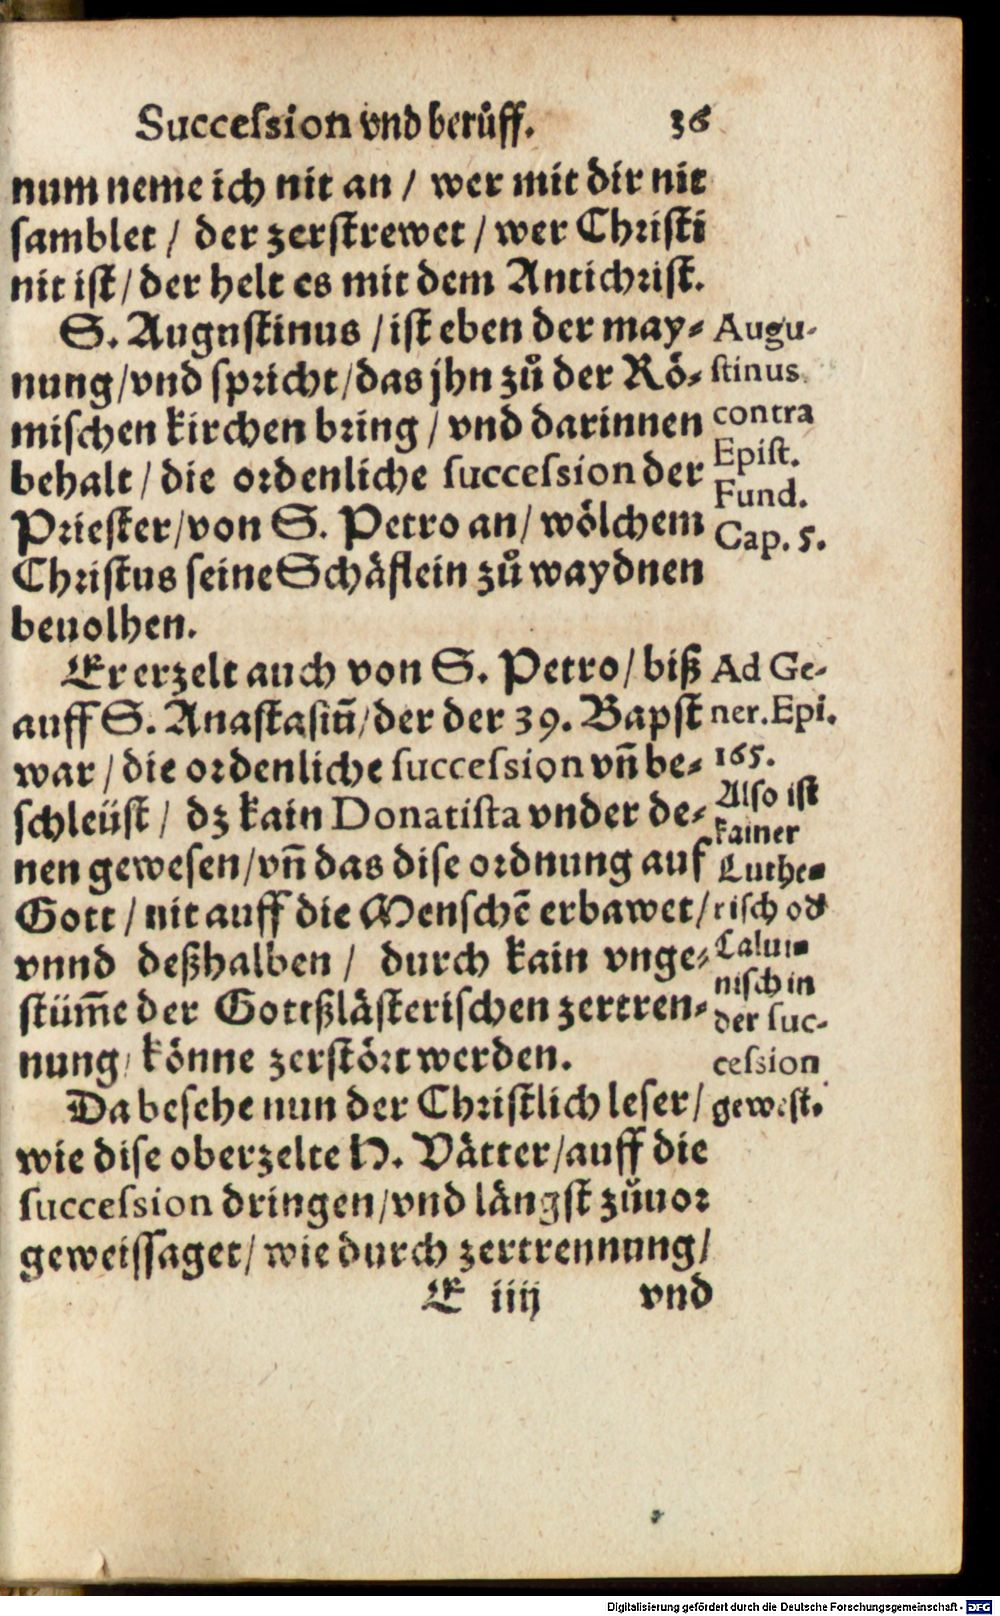 Succession vnd berůff. 36
num neme ich nit an / wer mit dir nit
samblet / der zerstrewet / wer Christi
nit ist / der helt es mit dem Antichrist.
S. Augustinus / ist eben der may⸗
nung / vnd spricht / das jhn zů der Rö⸗
mischen kirchen bring / vnd darinnen
behalt / die ordenliche succession der
Priester / von S. Petro an / wölchem
Christus seine Schäflein zů waydnen
beuolhen.
Augu-
stinus
contra
Epist.
Fund.
Cap. 5.
Er erzelt auch von S. Petro / biß
auff S. Anastasiū / der der 39. Bapst
war / die ordenliche succession vñ be⸗
schleüst / dz kain Donatista vnder de⸗
nen gewesen / vñ das dise ordnung auf
Gott / nit auff die Menschē erbawet /
vnnd deßhalben / durch kain vnge⸗
stüm̄e der Gottßlästerischen zertren⸗
nung / könne zerstört werden.
Ad Ge-
ner. Epi.
165.
Also ist
kainer
Luthe⸗
risch od
Calui⸗
nisch in
der suc-
cession
gewest.
Da besehe nun der Christlich leser /
wie dise oberzelte H. Vätter / auff die
succession dringen / vnd längst zůuor
geweissaget / wie durch zertrennung /
E iiij vnd
Digitalisierung gefördert durch die Deutsche Forschungsgemeinschaft - DFG